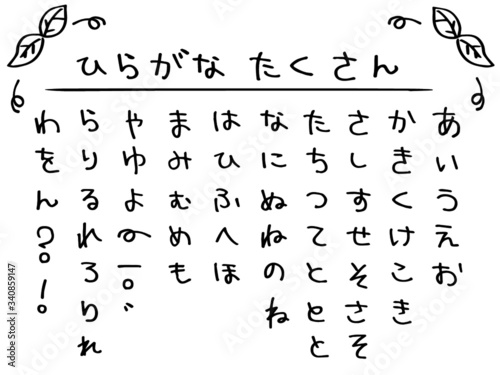 ひらがな たくさん
あいうえお
かきくけこき
さしすせそさそ
たちつてととと
なにぬねのね
はひふへほ
まみむめも
やゆよ〜ー。゛
らりるれろりれ
わをん？！
Adobe Stock | #340859147